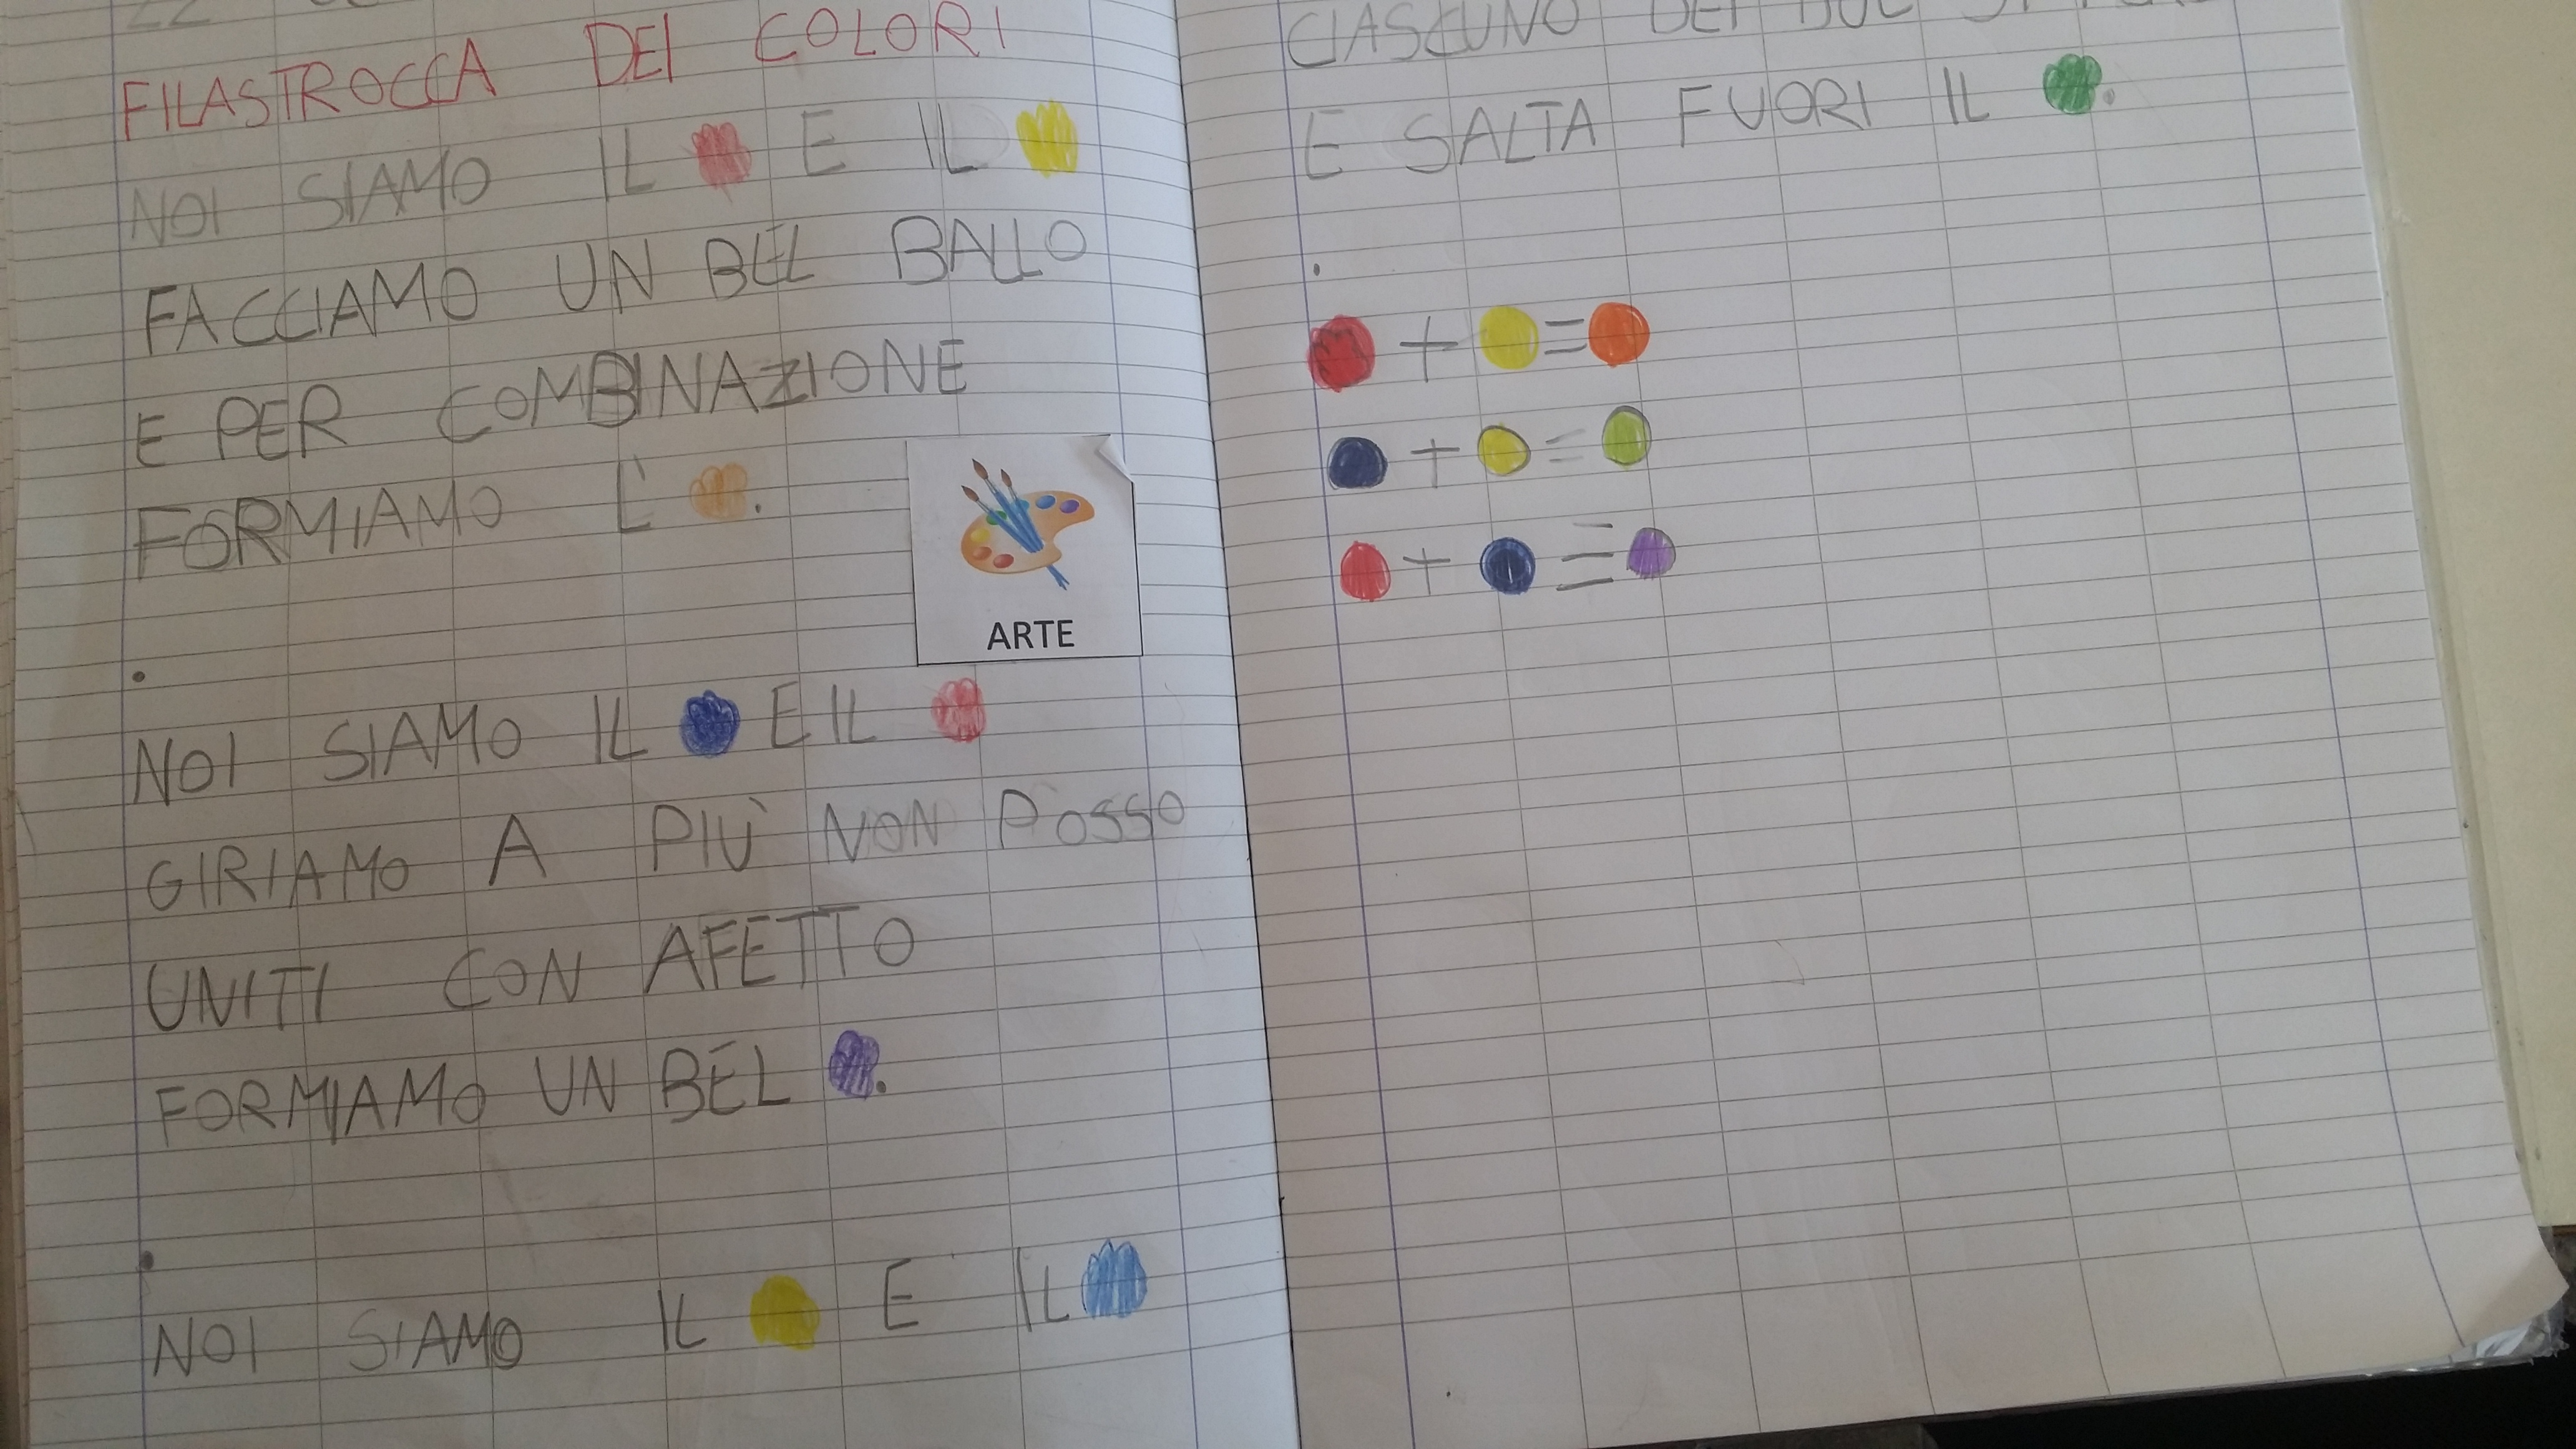 22
FILASTROCCA DEI COLORI
NOI SIAMO IL E IL
FACCIAMO UN BEL BALLO
E PER COMBINAZIONE
FORMIAMO L'.
ARTE
.
NOI SIAMO IL E IL
GIRIAMO A PIÙ NON POSSO
UNITI CON AFETTO
FORMIAMO UN BEL.
.
NOI SIAMO IL E IL
CIASCUNO DEI DUE
E SALTA FUORI IL.
.
+ =
+ =
+ =